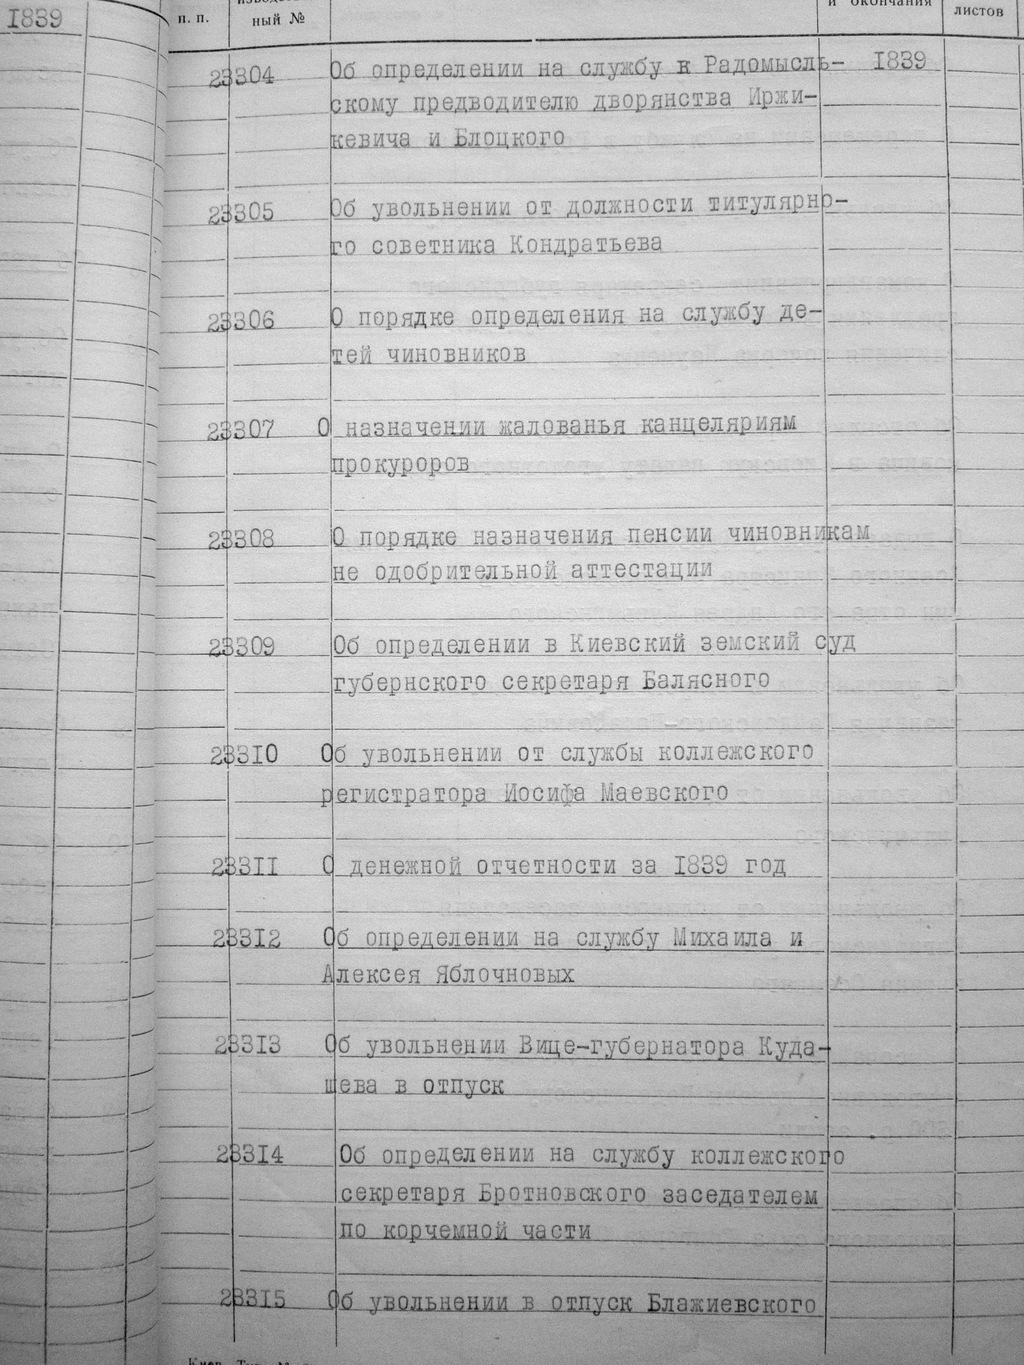 1839
п. п.
ный №
и окончания
листов
23304 Об определении на службу к Радомысль- 1839
скому предводителю дворянства Иржи-
кевича и Блоцкого
23305 Об увольнении от должности титулярно-
го советника Кондратьева
23306 О порядке определения на службу де-
тей чиновников
23307 О назначении жалованья канцеляриям
прокуроров
23308 О порядке назначения пенсии чиновникам
не одобрительной аттестации
23309 Об определении в Киевский земский суд
губернского секретаря Балясного
23310 Об увольнении от службы коллежского
регистратора Иосифа Маевского
23311 О денежной отчетности за 1839 год
23312 Об определении на службу Михаила и
Алексея Яблочновых
23313 Об увольнении Вице-губернатора Куда-
шева в отпуск
23314 Об определении на службу коллежского
секретаря Бротновского заседателем
по корчемной части
23315 Об увольнении в отпуск Блажиевского